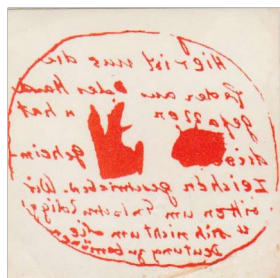 Hier ist uns die
Feder aus der Hand
gefallen u hat
diese Geheim-
Zeichen geschrieben. Wir
bitten um Entschuldig
u sich nicht um die
Deutung zu bemühen